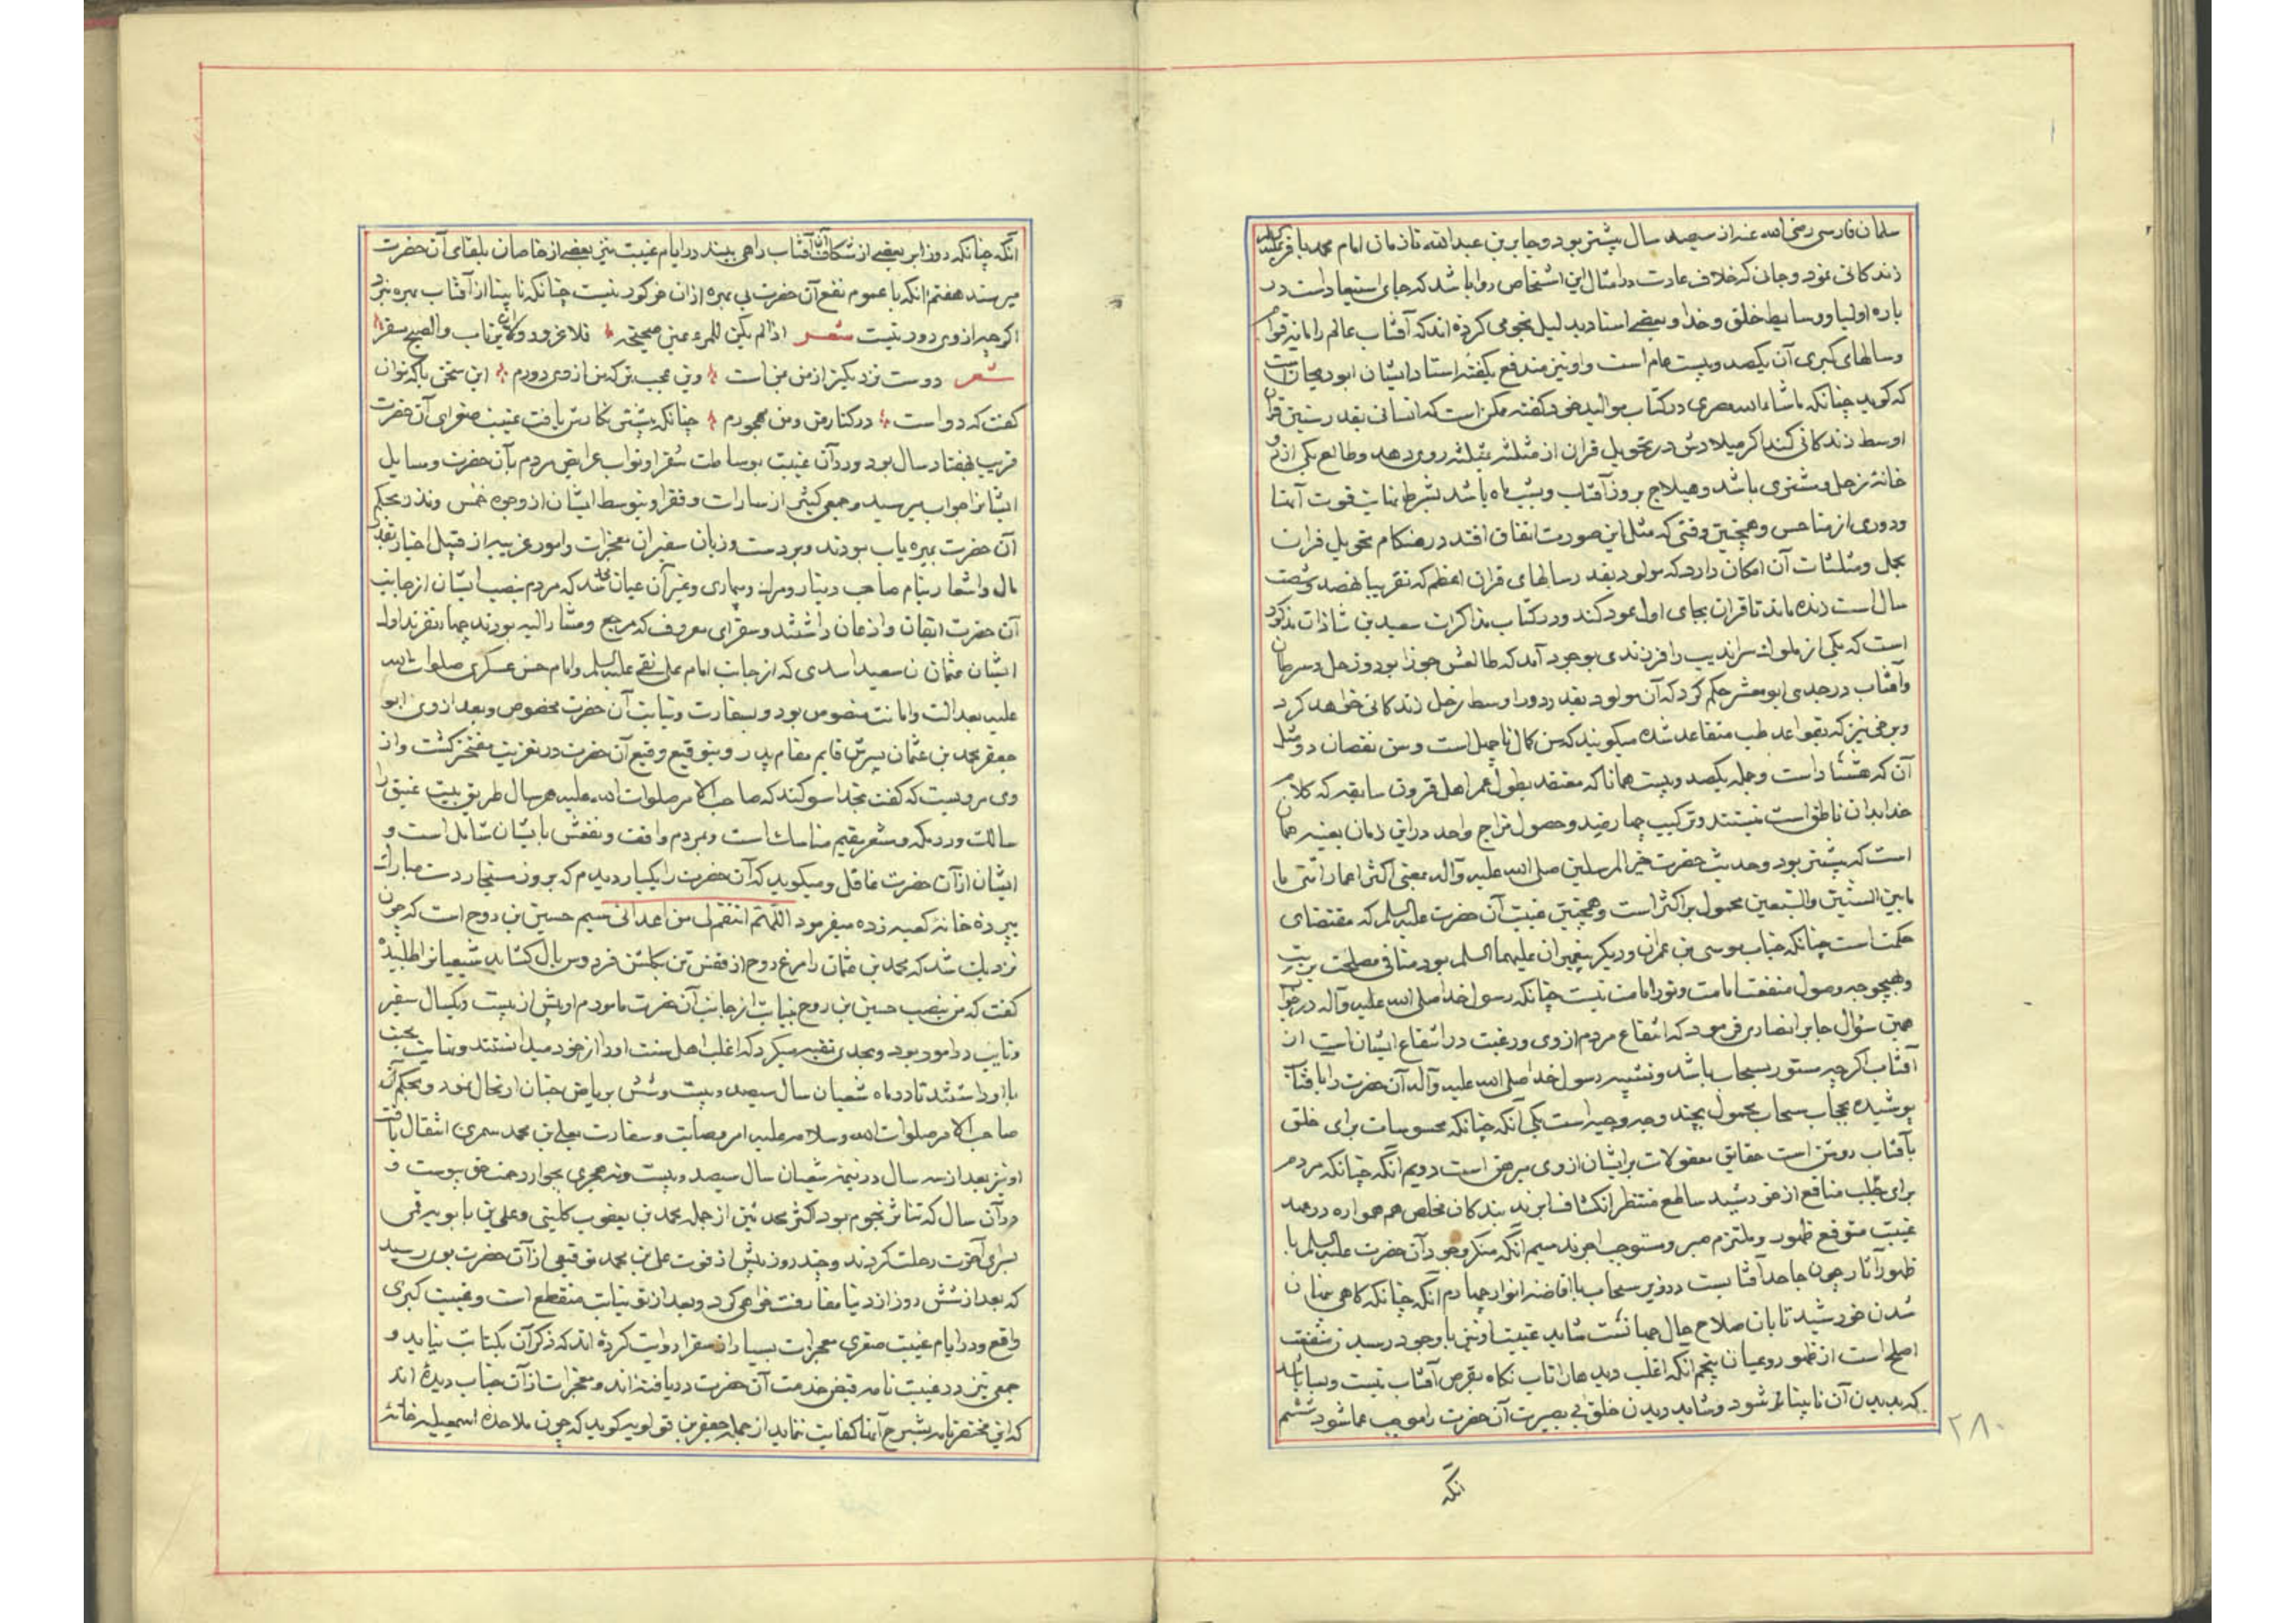 سلمان فارسی رضی الله عنه از سیصد سال بیشتر بود و جابر بن عبدالله تا زمان امام محمد باقر علیه السلام
زندکانی نمود و جائی که خلاف عادت در امثال این اشخاص روا باشد که جای استبعاد است در
باره اولیا و وسایط خلق و خدا و بعضی اسناد بدلیل نجومی کرده‌اند که آفتاب عالم را
وسالهای کبری آن یکصد و بیست عام است و او نیز مندفع بکفته استاد ایشان ابو ریحان است
که کوید چنانکه ماشاءالله مصری در کتاب موالید خود کفته ممکن است که انسانی بقدر سنین قران
اوسط زندکانی کند اکر میلادش در تحویل قران از مثلثه بمثلثه روی دهد و طالع یکی از دو
خانهٔ زحل و مشتری باشد و هیلاج بروز آفتاب و بشب ماه باشد بشرط نهایت قوت آنها
ودوری از مناحس و همچنین وقتی که مثل این صورت اتفاق افتد در هنکام تحویل قران
بحمل و مثلثات آن امکان دارد که مولود بقدر سالهای قران اعظم که تقریبا نهصد و شصت
سال است زنده ماند تا قران بجای اول عود کند و در کتاب مذاکرات سعید بن شاذان مذکور
است که یکی از ملوک سراندیب را فرزندی بوجود آمد که طالعش جوزا بود و زحل در سرطان
وآفتاب در جدی ابو معشر حکم کرد که آن مولود بقدر دور اوسط زحل زندکانی خواهد کرد
وبرخی نیز که بقواعد طب متقاعد شده میکویند که سن کمال تا چهل است و سن نقصان دو مثل
آن که هشتاد است و جمله یکصد و بیست همانا که معتقد بطول عمر اهل قرون سابقه که کلام
خدا بدان ناطق است نیستند و ترکیب چهار ضد و حصول مزاج واحد در این زمان بعینه همان
است که پیشتر بود و حدیث حضرت خیر المرسلین صلی الله علیه و آله معنی اکثر اعمار امتی ما
مابین الستین والسبعین محمول بر اکثر است و همچنین غیبت آن حضرت علیه السلم که مقتضای
حکمت است چنانکه غیاب موسی بن عمران و دیکر پیغمبران علیهما السلم بود منافی مصلحت نیست
وبهیچوجه وصول منفعت امامت و نور امامت نیست چنانکه رسول خدا صلی الله علیه و آله در جواب
همین سؤال جابر انصاری فرمود که انتفاع مردم از وی در غیبت در انتفاع ایشان است از
آفتاب اکرچه مستور بسحاب باشد و تشبیه رسول خدا صلی الله علیه و آله آن حضرت را بآفتاب
پوشیده بحجاب سحاب محمول بچند وجه وجیه است یکی آنکه چنانکه محسوسات برای خلق
بآفتاب روشن است حقایق معقولات بر ایشان از وی مبرهن است دویم آنکه چنانکه مردم
برای طلب منافع از خورشید ساطع منتظر انکشاف ابرند بندکان مخلص هم همواره در عهد
غیبت متوقع ظهور و ملتزم صبر و مستوجب اجرند سیم آنکه منکر وجود آن حضرت علیه السلم با
ظهور آثار چون جاحد آفتابست در زیر سحاب با افاضه انوار چهارم آنکه چنانکه کاهی پنهان
شدن خورشید تابان صلاح حال جهانست شاید غیبت او نیز با وجود رسیدن منفعت
اصلح است از ظهور و عیان پنجم آنکه اغلب دیدها را تاب نکاه بقرص آفتاب نیست و بسا باشد
که بدیدن آن نابینا تر شود و شاید دیدن خلق بی بصیرت آن حضرت را موجب عما شود ششم
۲۸۰
آنکه
آنکه چنانکه روز ابر بعضی از شکاف آن آفتاب را همی بینند در ایام غیبت نیز بعضی از خاصان بلقای آن حضرت
میرسند هفتم آنکه با عموم نفع آن حضرت بی بهره از آن جز کور نیست چنانکه نابینا از آفتاب بهره نبرد
اکرچه از وی دور نیست شعر اذا لم یکن للمرء عین صحیحة فلا غرو ان یرتاب والصبح مسفر
شعر دوست نزدیکتر از من بمن است وین عجب تر که من از وی دورم این سخن با که توان
کفت که دوست در کنار من و من مهجورم چنانکه پیشتر نکارش یافت غیبت صغرای آن حضرت
قریب بهفتاد سال بود و در آن غیبت بوساطت سفرا و نواب عرایض مردم بآن حضرت و مسایل
ایشانرا جواب میرسید و جمعی کثیر از سادات و فقرا و بتوسط ایشان از وجوه خمس و نذر بحکم
آن حضرت بهره یاب بودند و بر دست و زبان سفیران معجزات و امور غریبه از قبیل اخبار بقدر
مال و اشعار بنام صاحب دینار و مرک و بیماری و غیر آن عیان شد که مردم بنصب ایشان از جانب
آن حضرت ایقان و اذعان داشتند و سفرای معروف که مرجع و مشار الیه بودند چهار نفرند اول
ایشان عثمان بن سعید اسدی که از جانب امام علی نقی علیه السلم و امام حسن عسکری صلوات الله
علیه بعدالت و امانت منصوص بود و بسفارت و نیابت آن حضرت مخصوص و بعد از وی ابو
جعفر محمد بن عثمان پسرش قایم مقام پدر و بتوقیع وقیع آن حضرت در تعزیت مفتخر کشت و از
وی مرویست که کفت بخدا سوکند که صاحب الامر صلوات الله علیه هر سال طریق بیت عتیق را
سالک و در مکه و مشعر مقیم مناسک است و بمردم واقف و نفعش بایشان شامل است و
ایشان از آن حضرت غافل و میکوید که آن حضرت را یکبار دیدم که بروز مستجار دست مبارک
بپرده خانهٔ کعبه زده میفرمود اللهم انتقم لی من اعدائی سیم حسین بن روح است که چون
نزدیک شد که محمد بن عثمان را مرغ روح از قفس تن بکلشن فردوس بال کشاید شیعیانرا طلبیده
کفت که من بنصب حسین بن روح بنیابت از جانب آن حضرت مامورم او بیش از بیست و یکسال سفیر
ونایب در امور بود و بحدی تقیه میکرد که اغلب اهل سنت او را از خود میدانستند و بنهایت محبت
با او داشتند تا در ماه شعبان سال سیصد و بیست و شش بریاض جنان ارتحال نمود و بحکم آن
صاحب الامر صلوات الله و سلامه علیه امر وصایت و سفارت بعلی بن محمد سمری انتقال یافت
او نیز بعد از سه سال در نیمه شعبان سال سیصد و بیست و نه هجری بجوار رحمت حق پیوست و
در آن سال که تناثر نجوم بود اکثر محدثین از جمله محمد بن یعقوب کلینی و علی بن بابویه قمی
بسرای آخرت رحلت کردند و چند روز پیش از فوت علی بن محمد توقیعی از آن حضرت بوی رسید
که بعد از شش روز از دنیا مفارقت خواهی کرد و بعد از تو نیابت منقطع است و غیبت کبری
واقع و در ایام غیبت صغری معجزات بسیار از سفرا روایت کرده‌اند که ذکر آن بکتابت نیاید و
جمعی نیز در غیبت تامه فیض خدمت آن حضرت دریافته‌اند و معجزات از آن جناب دیده‌اند
که این مختصر نامه بشرح آنها کفایت ننماید از جمله جعفر بن قولویه کوید که چون ملاحده اسمعیلیه خانهٔ